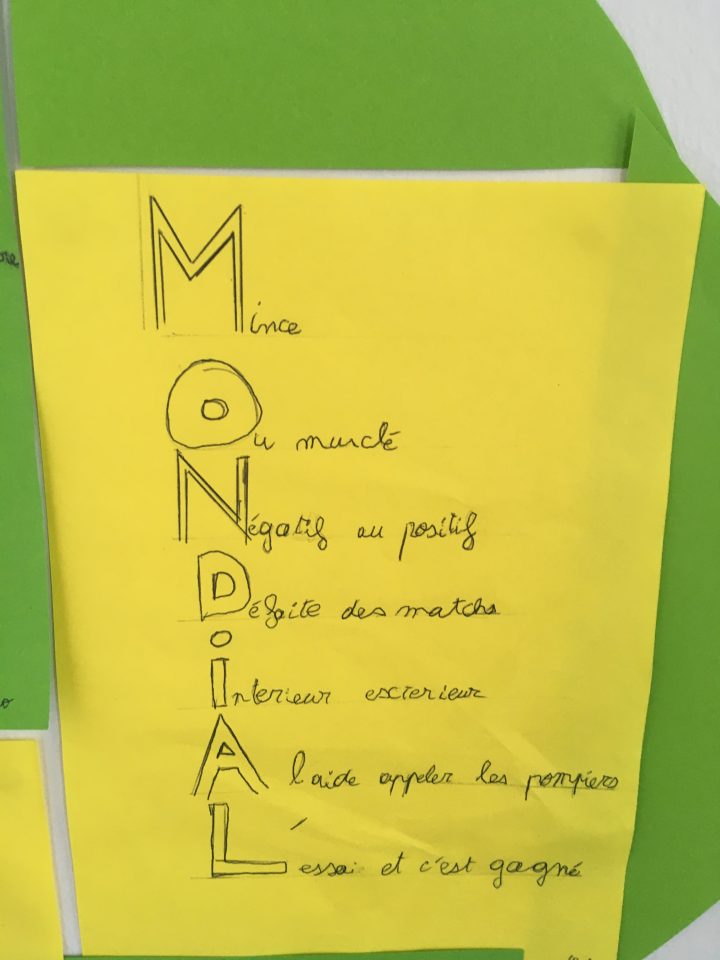 Mince
Ou murclé
Négatif ou positif
Défaite des matchs
Interieur exterieur
A l'aide appeler les pompiers
L'essai et c'est gagné